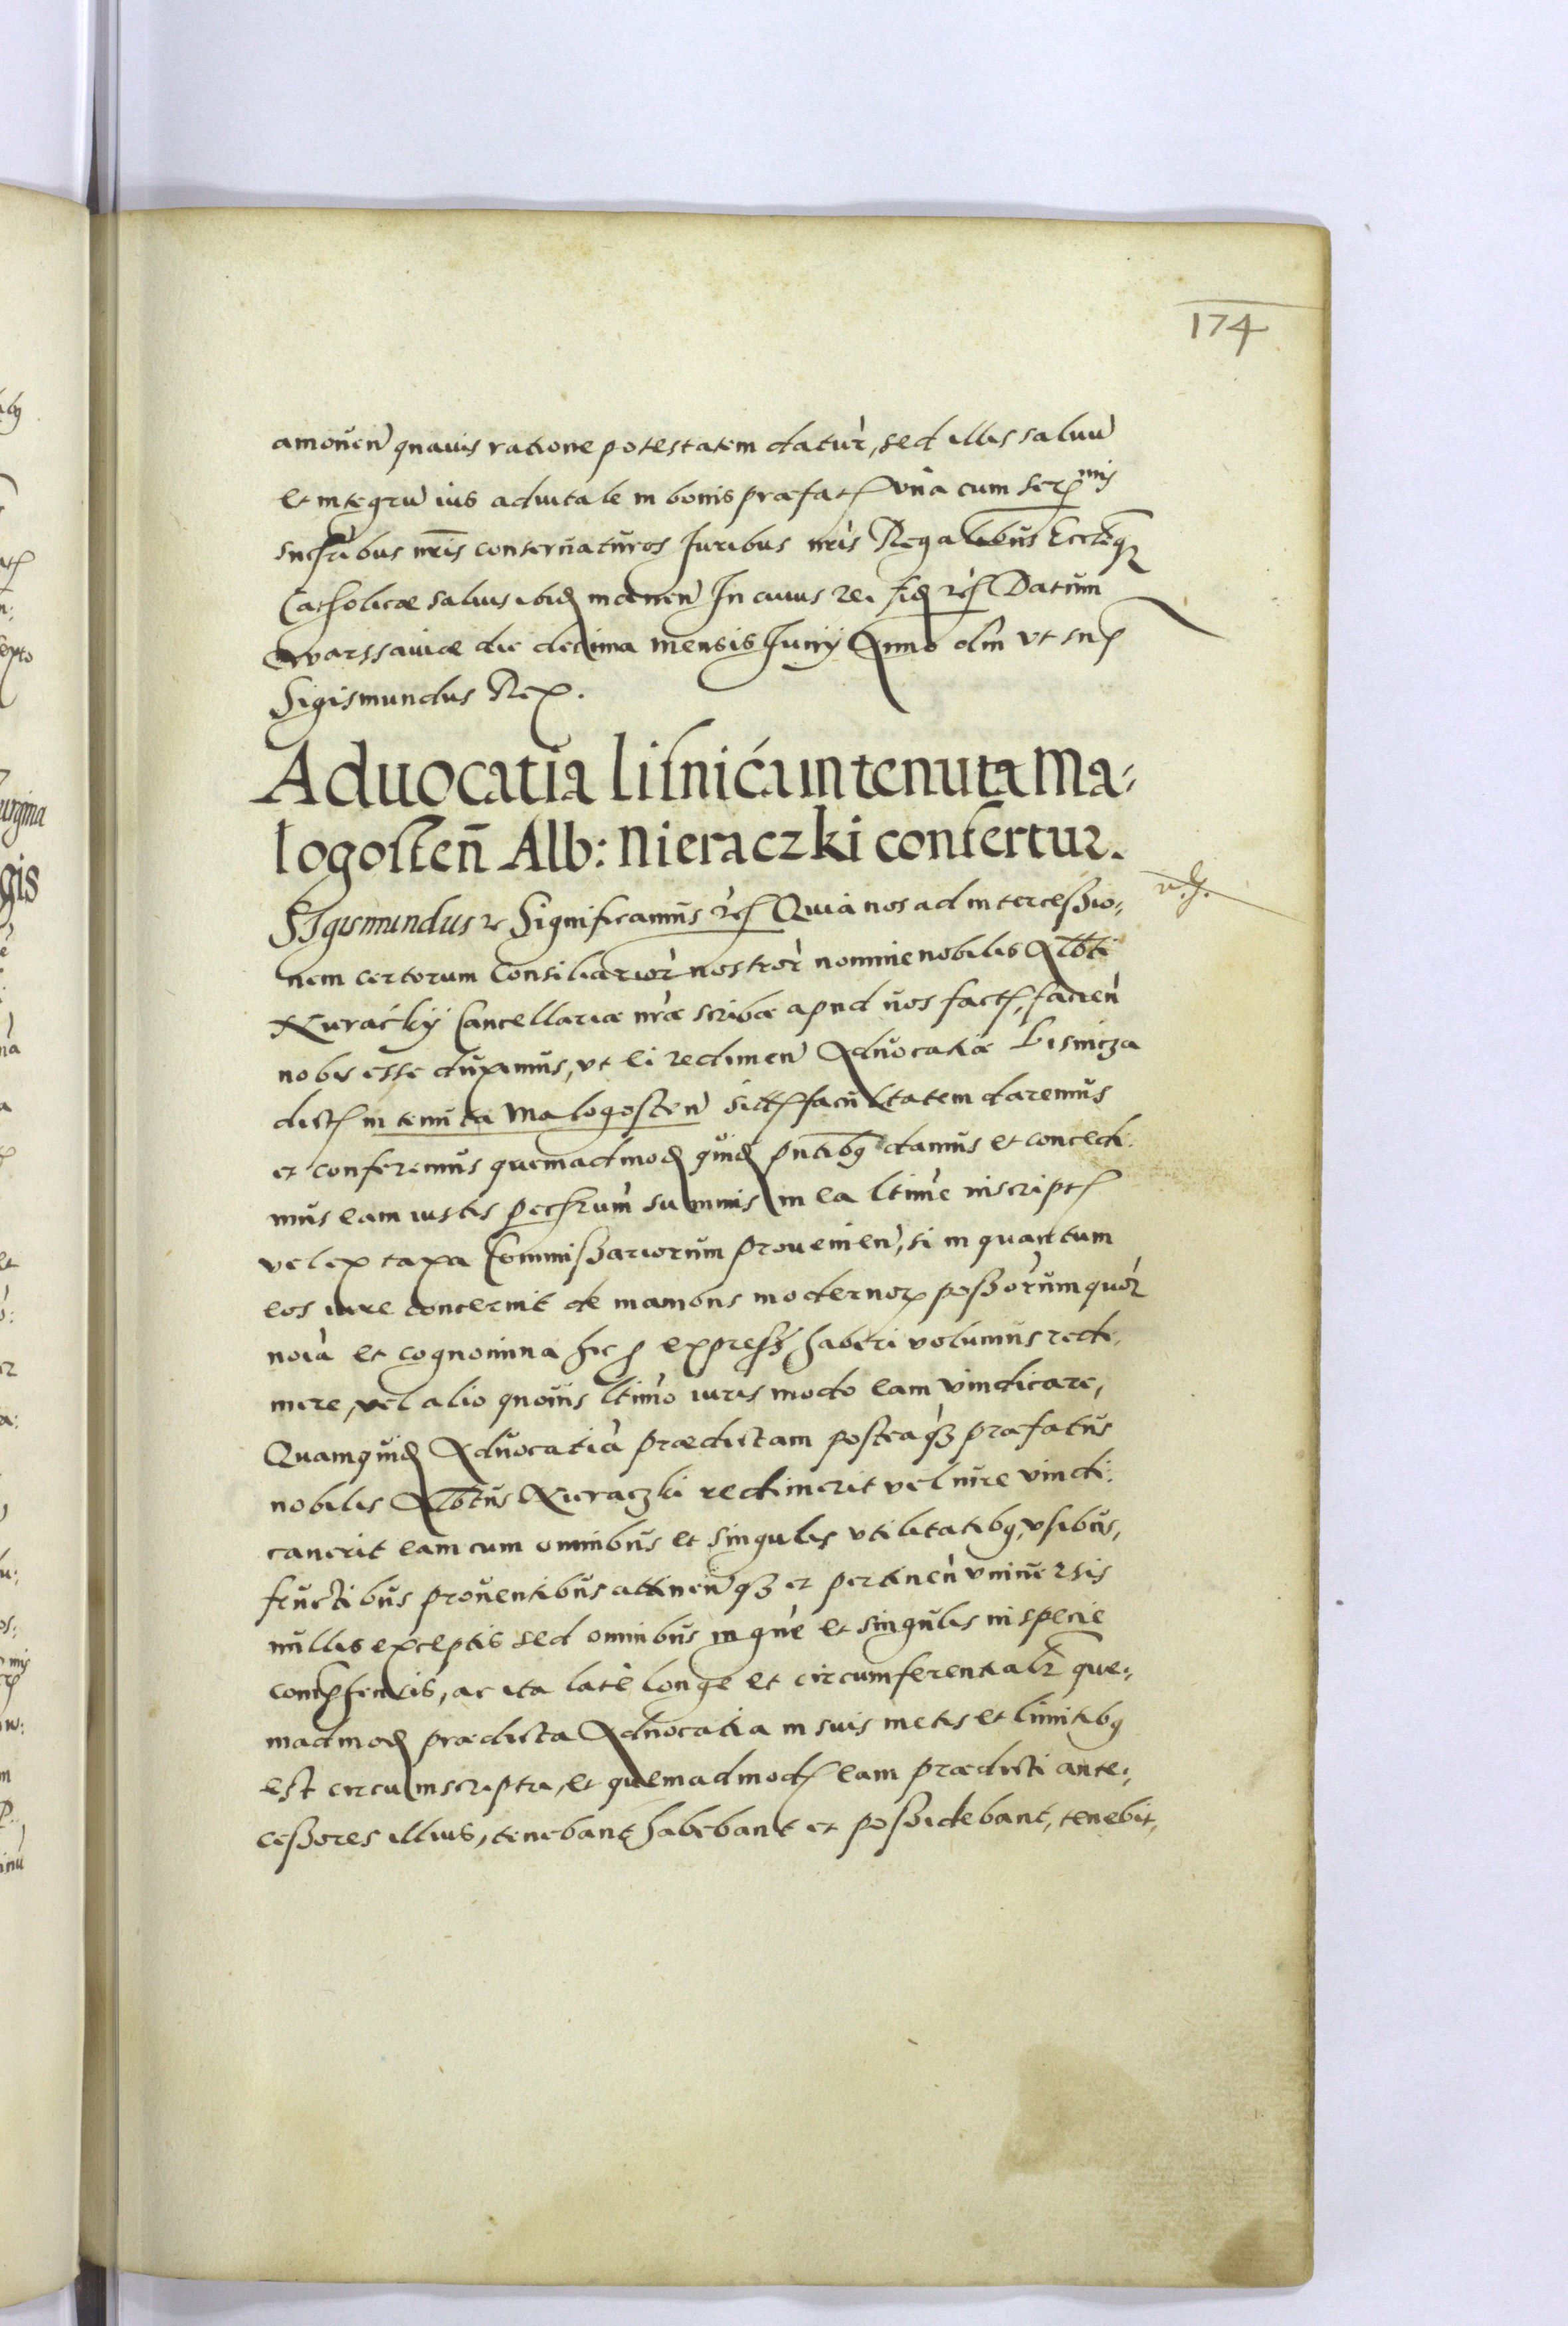 174
amouen quauis ratione potestatem datur, sed illis saluu
et integru ius aduitale in bonis praefat vna cum Ser mis
Sucribus nris conseruaturos Juribus nris Regalibus Ecclieq
Catholicae saluis ibid manen In cuius rei fid rc Datum
warssaviae die decima mensis Junij Anno dni vt sup
Sigismundus Rex.
Aduocatia lisnića in tenuta Ma-
logosten Alb: Nieraczki confertur.
SIgismundus rc Significamus rc Quia nos ad intercessio-
nem certorum Consiliarior nostror nomine nobilis Albti
Nieraćkij Cancellariae nrae scribae apud nos fact, facien
nobis esse duximus, vt ei redimen Aduocatiae Lisnicza
dict in tenuta Malogosten sitt facultatem daremus
et conferemus quemadmod quid pntibq damus et concedi-
mus eam iustis pechrum summis in ea ltime inscript
vel ex taxa Commissariorum prouenien, si in quantum
eos iure concernit de manibus modernor possorum quor
noia et cognomina hic p express haberi volumus redi-
mere, vel alio quouis ltimo iuris modo eam vindicare,
Quamquid Aduocatia praedictam posteaq praefatus
nobilis Albtus Nieraczki redimerit vel iure vindi-
cauerit eam cum omnibus et singulis vtilitatibq, vsibus,
fructibus prouentibus attinen q et pertinen vniuersis
nullis exceptis sed omnibus in gne et singulis in specie
comphensis, ac ita late longe et circumferentialr que-
madmod praedicta Aduocatia in suis metis et limitibq
est circumscripta, et quemadmod eam praedicti ante-
cessores illius, tenebant habebant et possidebant, tenebit,